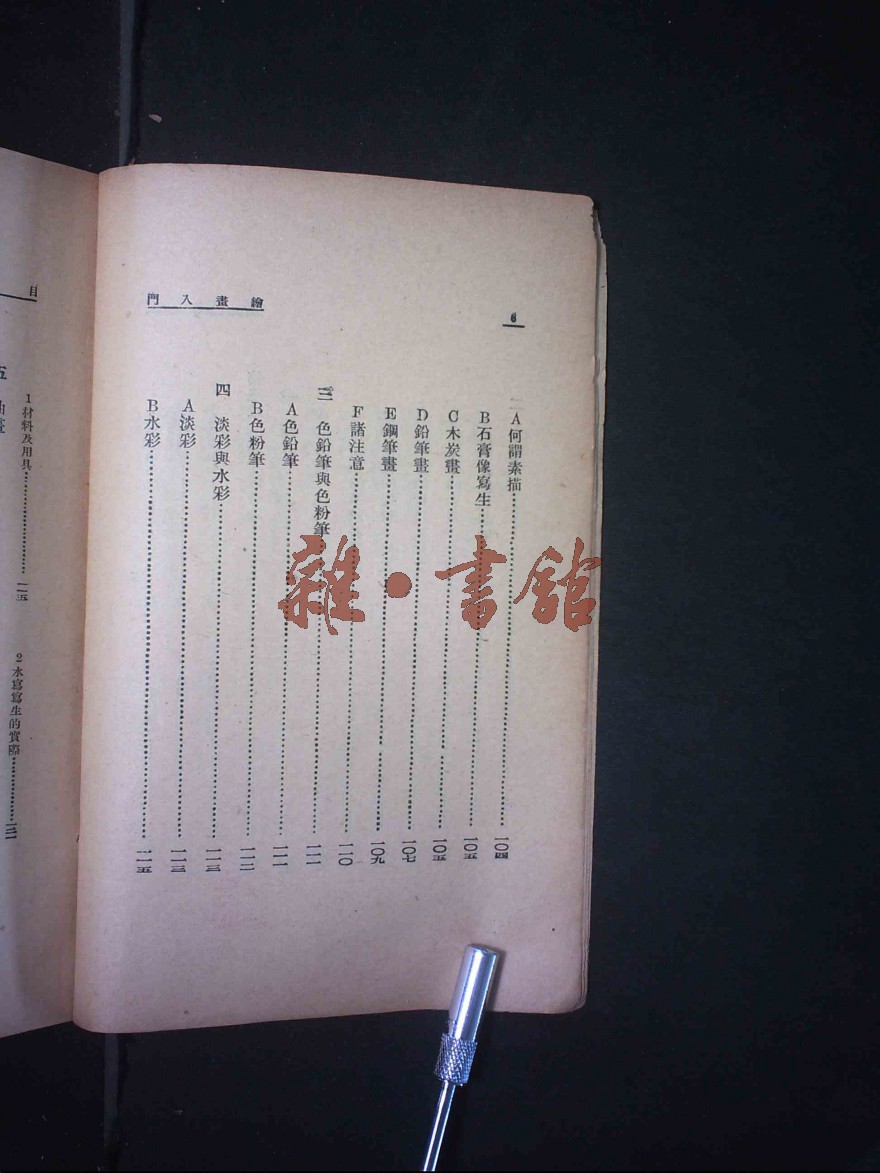 繪畫入門
6
A何謂素描……一〇四
B石膏像寫生……一〇五
C木炭畫……一〇五
D鉛筆畫……一〇七
E鋼筆畫……一〇九
F諸注意……一一〇
三 色鉛筆與色粉筆……一一一
A色鉛筆……一一一
B色粉筆……一一二
四 淡彩與水彩……一一三
A淡彩……一一三
B水彩……一一五
目
1材料及用具……一一五
2水寫寫生的實際……
五
雜·書館